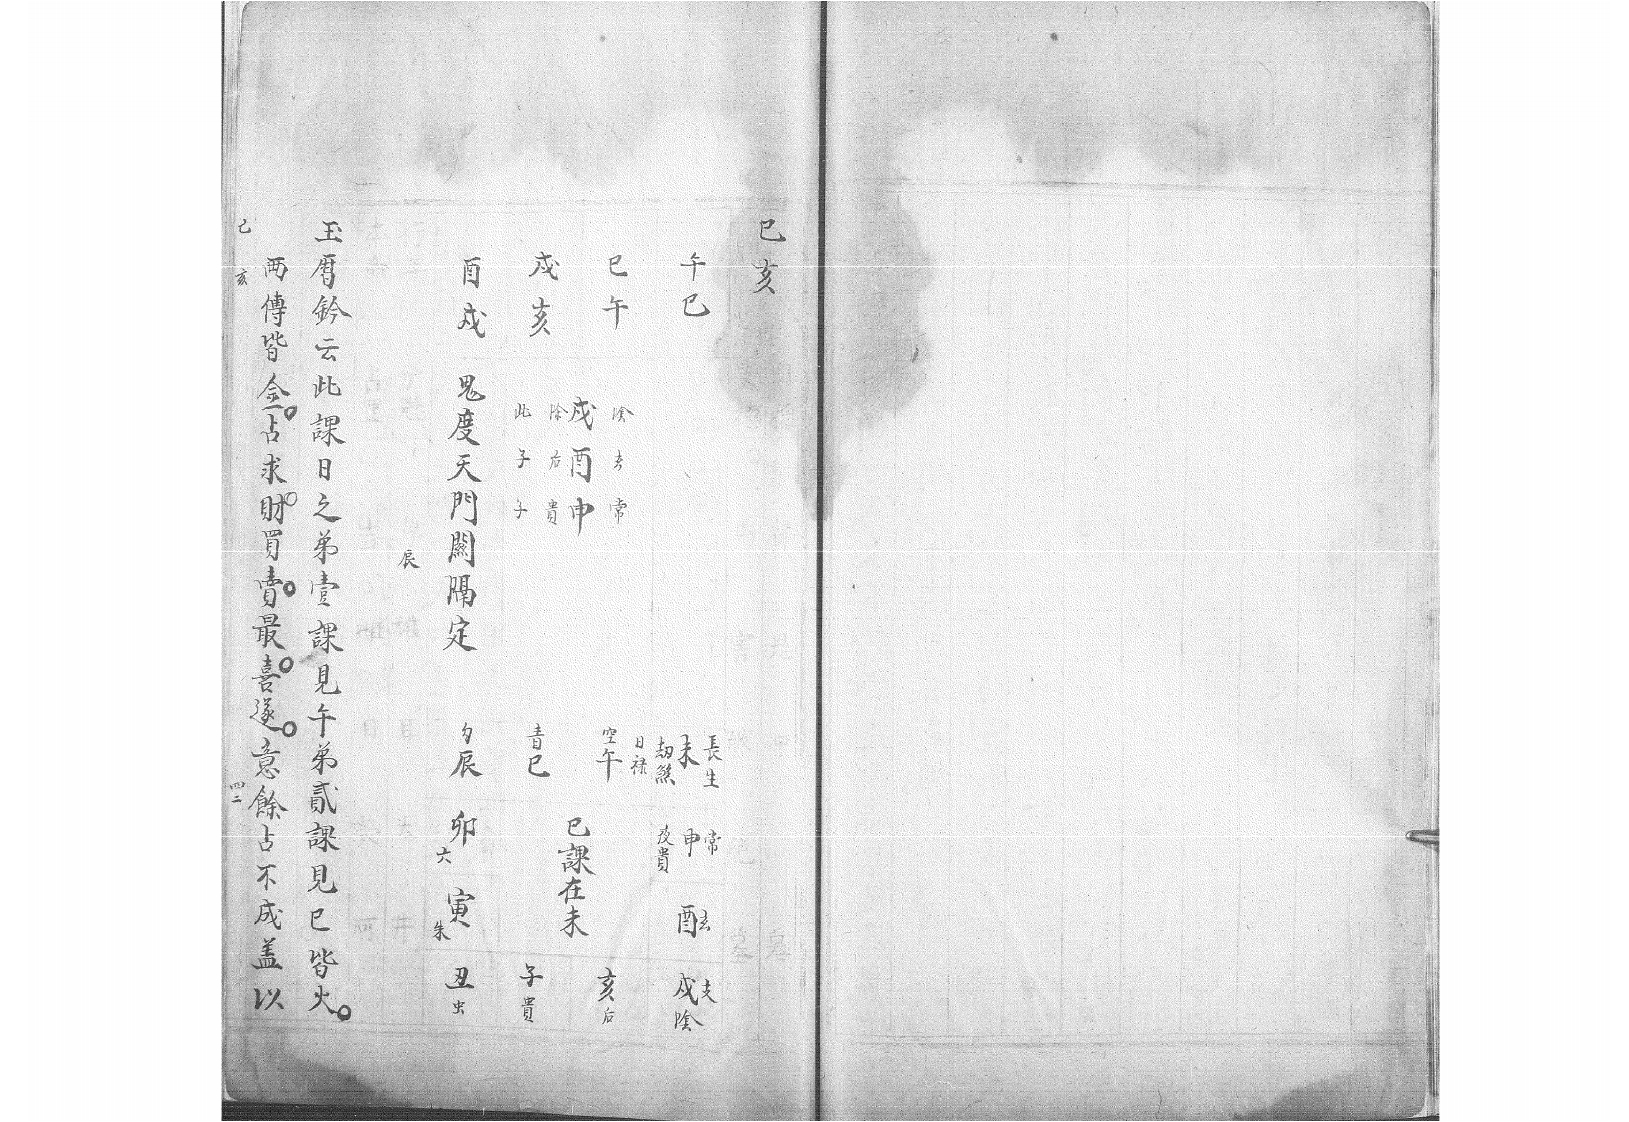 巳亥
午巳
巳午
戌亥
酉戌
陰 玄 常
戌酉申
陰 后 貴
此 子 子
鬼度天門関隔定
辰
長生 常 玄 支
未 申 酉 戌陰
劫煞 夜貴
日禄
空午 亥后
巳課在未
青巳 子貴
勾辰 卯六 寅朱 丑虫
玉曆鈐云此課日之弟壹課見午弟貳課見巳皆火
兩傳皆金占求財買賣最喜遂意餘占不成盖以
己亥
四二